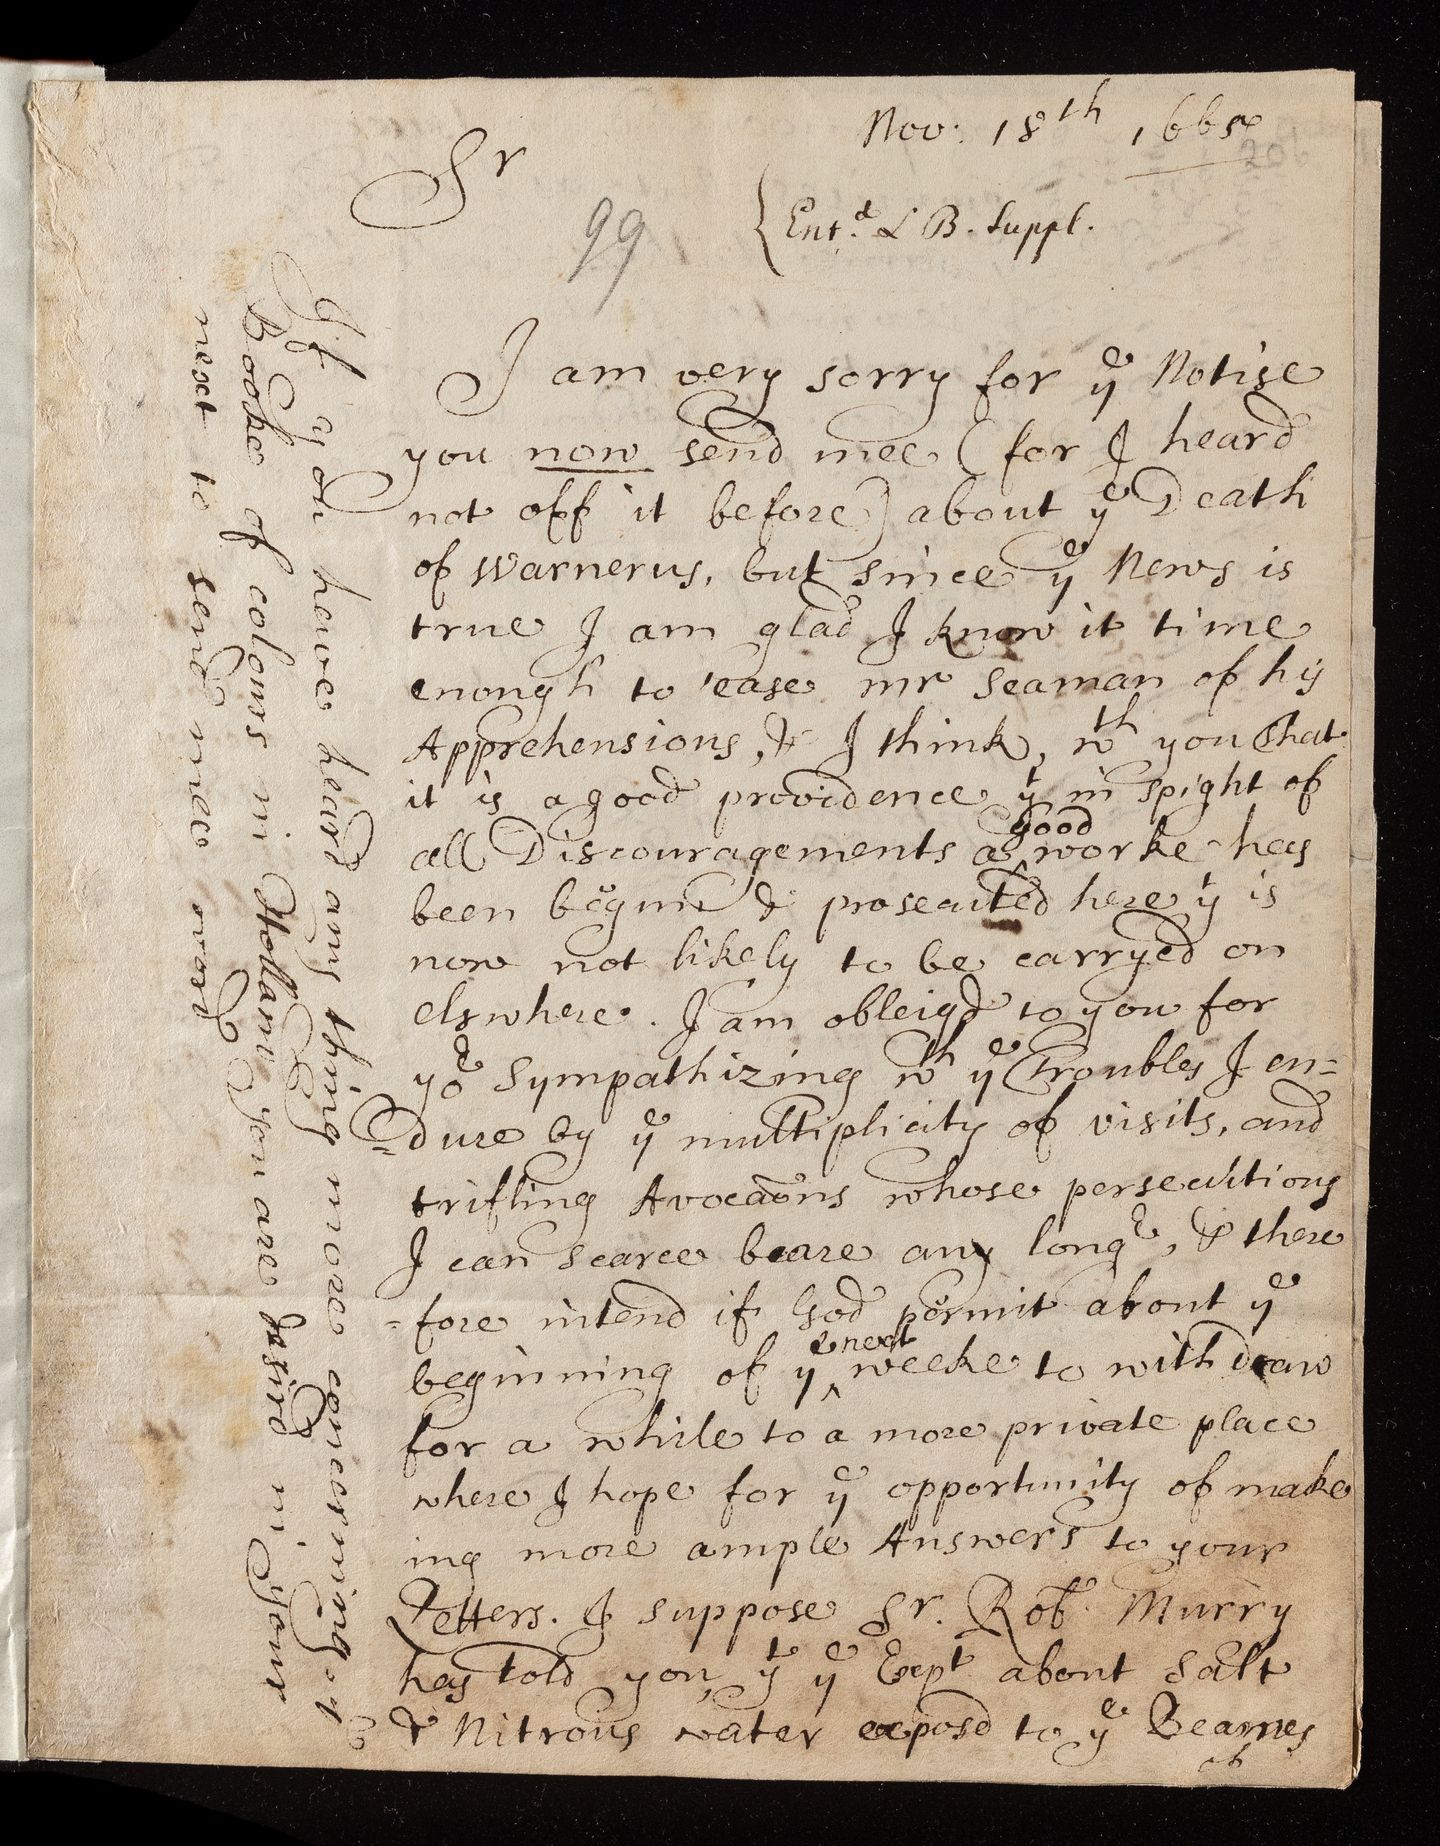 Nov: 18th 1665
206
Sr
99
{Entd. L B. Suppl.
I am very sorry for ye Notise
you now send mee (for I heard
not off it before) about ye Death
of Warnerus, but since ye News is
true I am glad I know it time
enough to ease mr Seaman of his
Apprehensions, & I think, wth you that
it is a good providence yt in spight of
all Discouragements a good worke has
been begun & prosecuted here yt is
now not likely to be carryed on
elswhere. I am obleigd to you for
yor Sympathizing wth ye Troubles I en=
=dure by ye multiplicity of visits, and
trifling Avocaons whose persecutions
I can scarce beare any longr, & there
=fore intend if God permit about ye
beginning of ye next weeke to withdraw
for a while to a more private place
where I hope for ye opportunity of make
ing more ample Answers to your
Letters. I suppose Sr. Rob: Murry
has told you, yt ye Expt about Salt
& Nitrous water exposd to ye Beames
If you have heard any thing more concerning ye
Booke of colours in Holland you are desird in your
next to send mee word